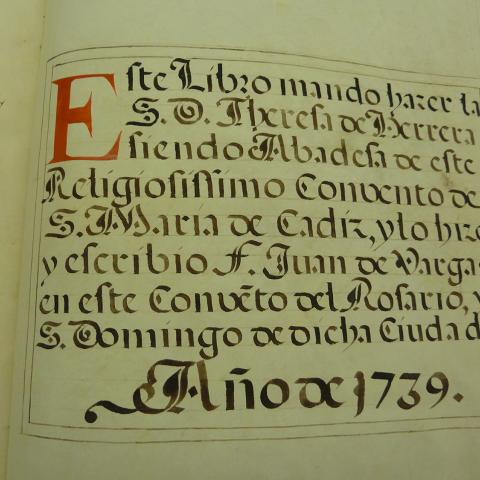 Este Libro mando hazer la
S. D. Theresa de Herrera
siendo Abadesa de este
Religiosissimo Convento de
S. Maria de Cadiz, y lo hizo
y escribio F. Juan de Vargas
en este Convẽto del Rosario, y
S. Domingo de dicha Ciudad
Año de 1739.